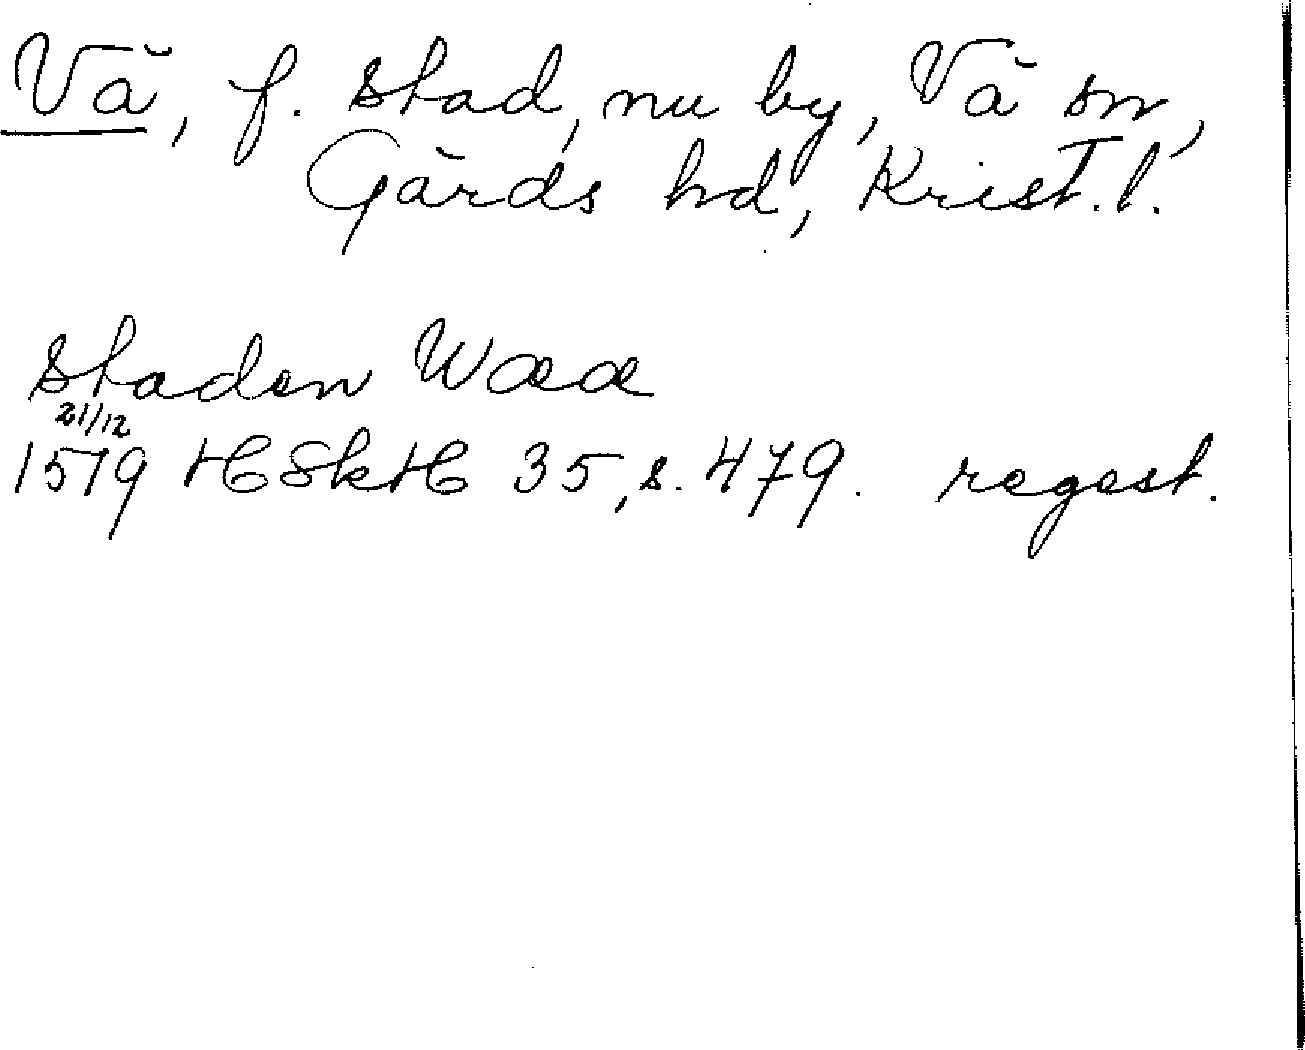 Vä, f. stad, nu by, Vä sn,
Gärds hd, Krist. l.
staden Wææ
21/12
1579 HSkH 35, s. 479. regest.